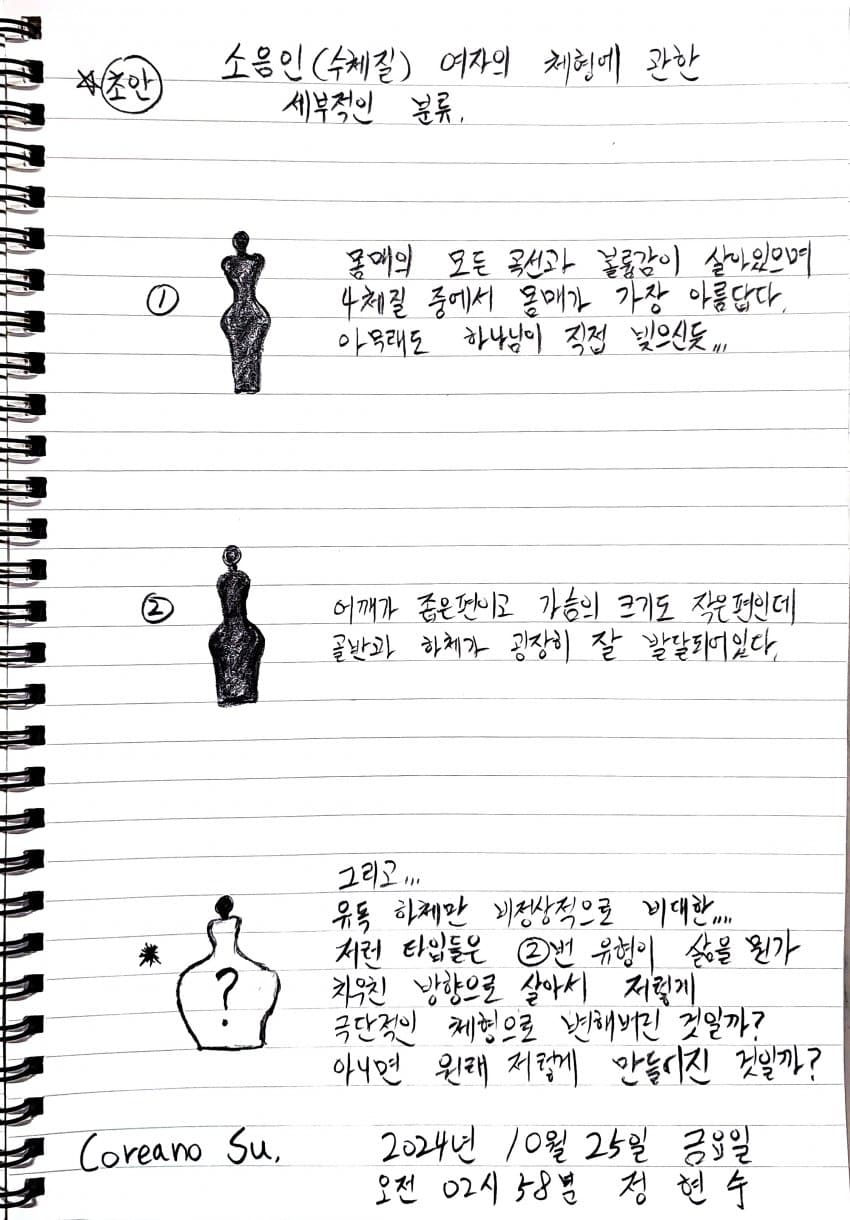 ☆초안 소음인(수체질) 여자의 체형에 관한
세부적인 분류.
① 몸매의 모든 곡선과 볼륨감이 살아있으며
4체질 중에서 몸매가 가장 아름답다.
아무래도 하나님이 직접 빚으신듯,,,
② 어깨가 좁은편이고 가슴의 크기도 작은편인데
골반과 하체가 굉장히 잘 발달되어있다.
그리고,,,
유독 하체만 비정상적으로 비대한,,,,
저런 타입들은 ②번 유형이 삶을 뭔가
치우친 방향으로 살아서 저렇게
?
극단적인 체형으로 변해버린 것일까?
아니면 원래 저렇게 만들어진 것일까?
Coreano Su. 2024년 10월 25일 금요일
오전 02시 58분 정 현 수